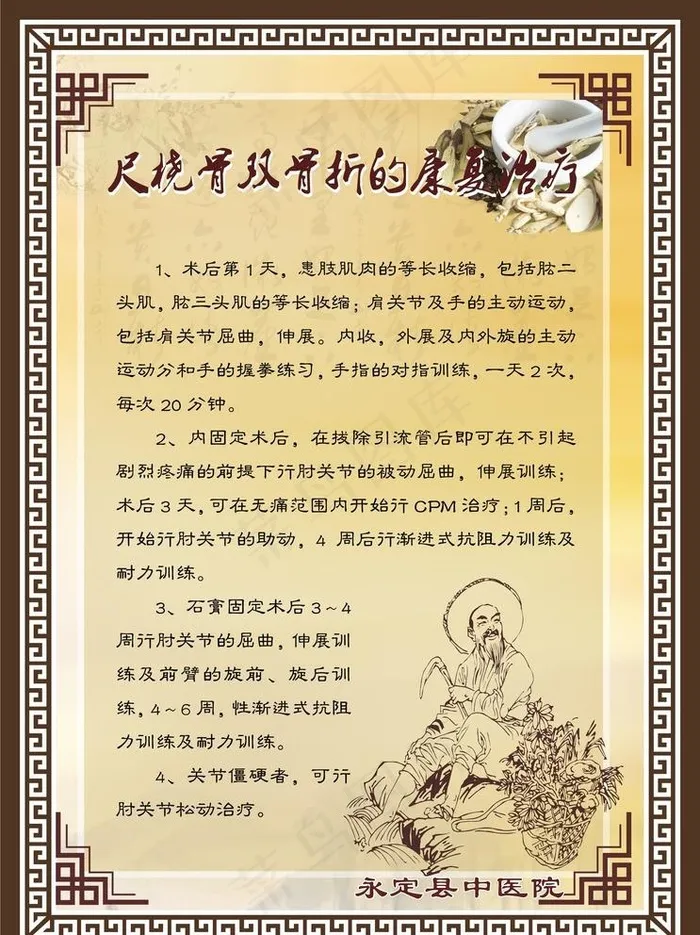 尺桡骨双骨折的康复治疗
1、术后第1天，患肢肌肉的等长收缩，包括肱二
头肌，肱三头肌的等长收缩；肩关节及手的主动运动，
包括肩关节屈曲，伸展。内收，外展及内外旋的主动
运动分和手的握拳练习，手指的对指训练，一天2次，
每次20分钟。
2、内固定术后，在拔除引流管后即可在不引起
剧烈疼痛的前提下行肘关节的被动屈曲，伸展训练；
术后3天，可在无痛范围内开始行CPM治疗；1周后，
开始行肘关节的助动，4 周后行渐进式抗阻力训练及
耐力训练。
3、石膏固定术后3～4
周行肘关节的屈曲，伸展训
练及前臂的旋前、旋后训
练，4～6周，性渐进式抗阻
力训练及耐力训练。
4、关节僵硬者，可行
肘关节松动治疗。
永定县中医院